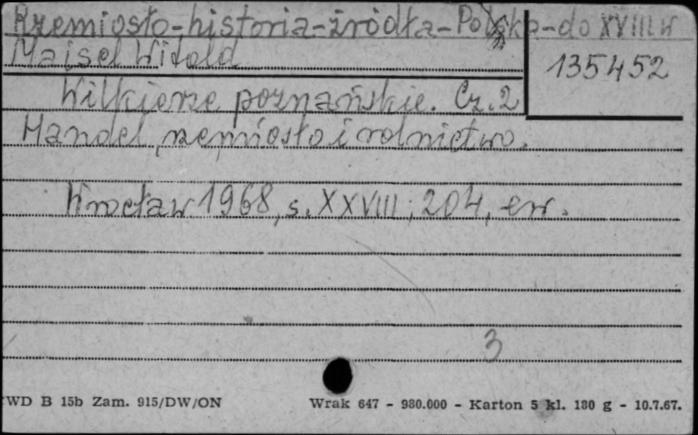 Rzemiosło-historia-źródła-Polska-do XVIII w
Maisel Witold
135452
Wilkierze poznańskie. Cz. 2
Handel, rzemiosło i rolnictwo.
Wrocław 1968, s. XXVIII, 204, err.
3
WD B 15b Zam. 915/DW/ON Wrak 647 - 980.000 - Karton 5 kl. 180 g - 10.7.67.